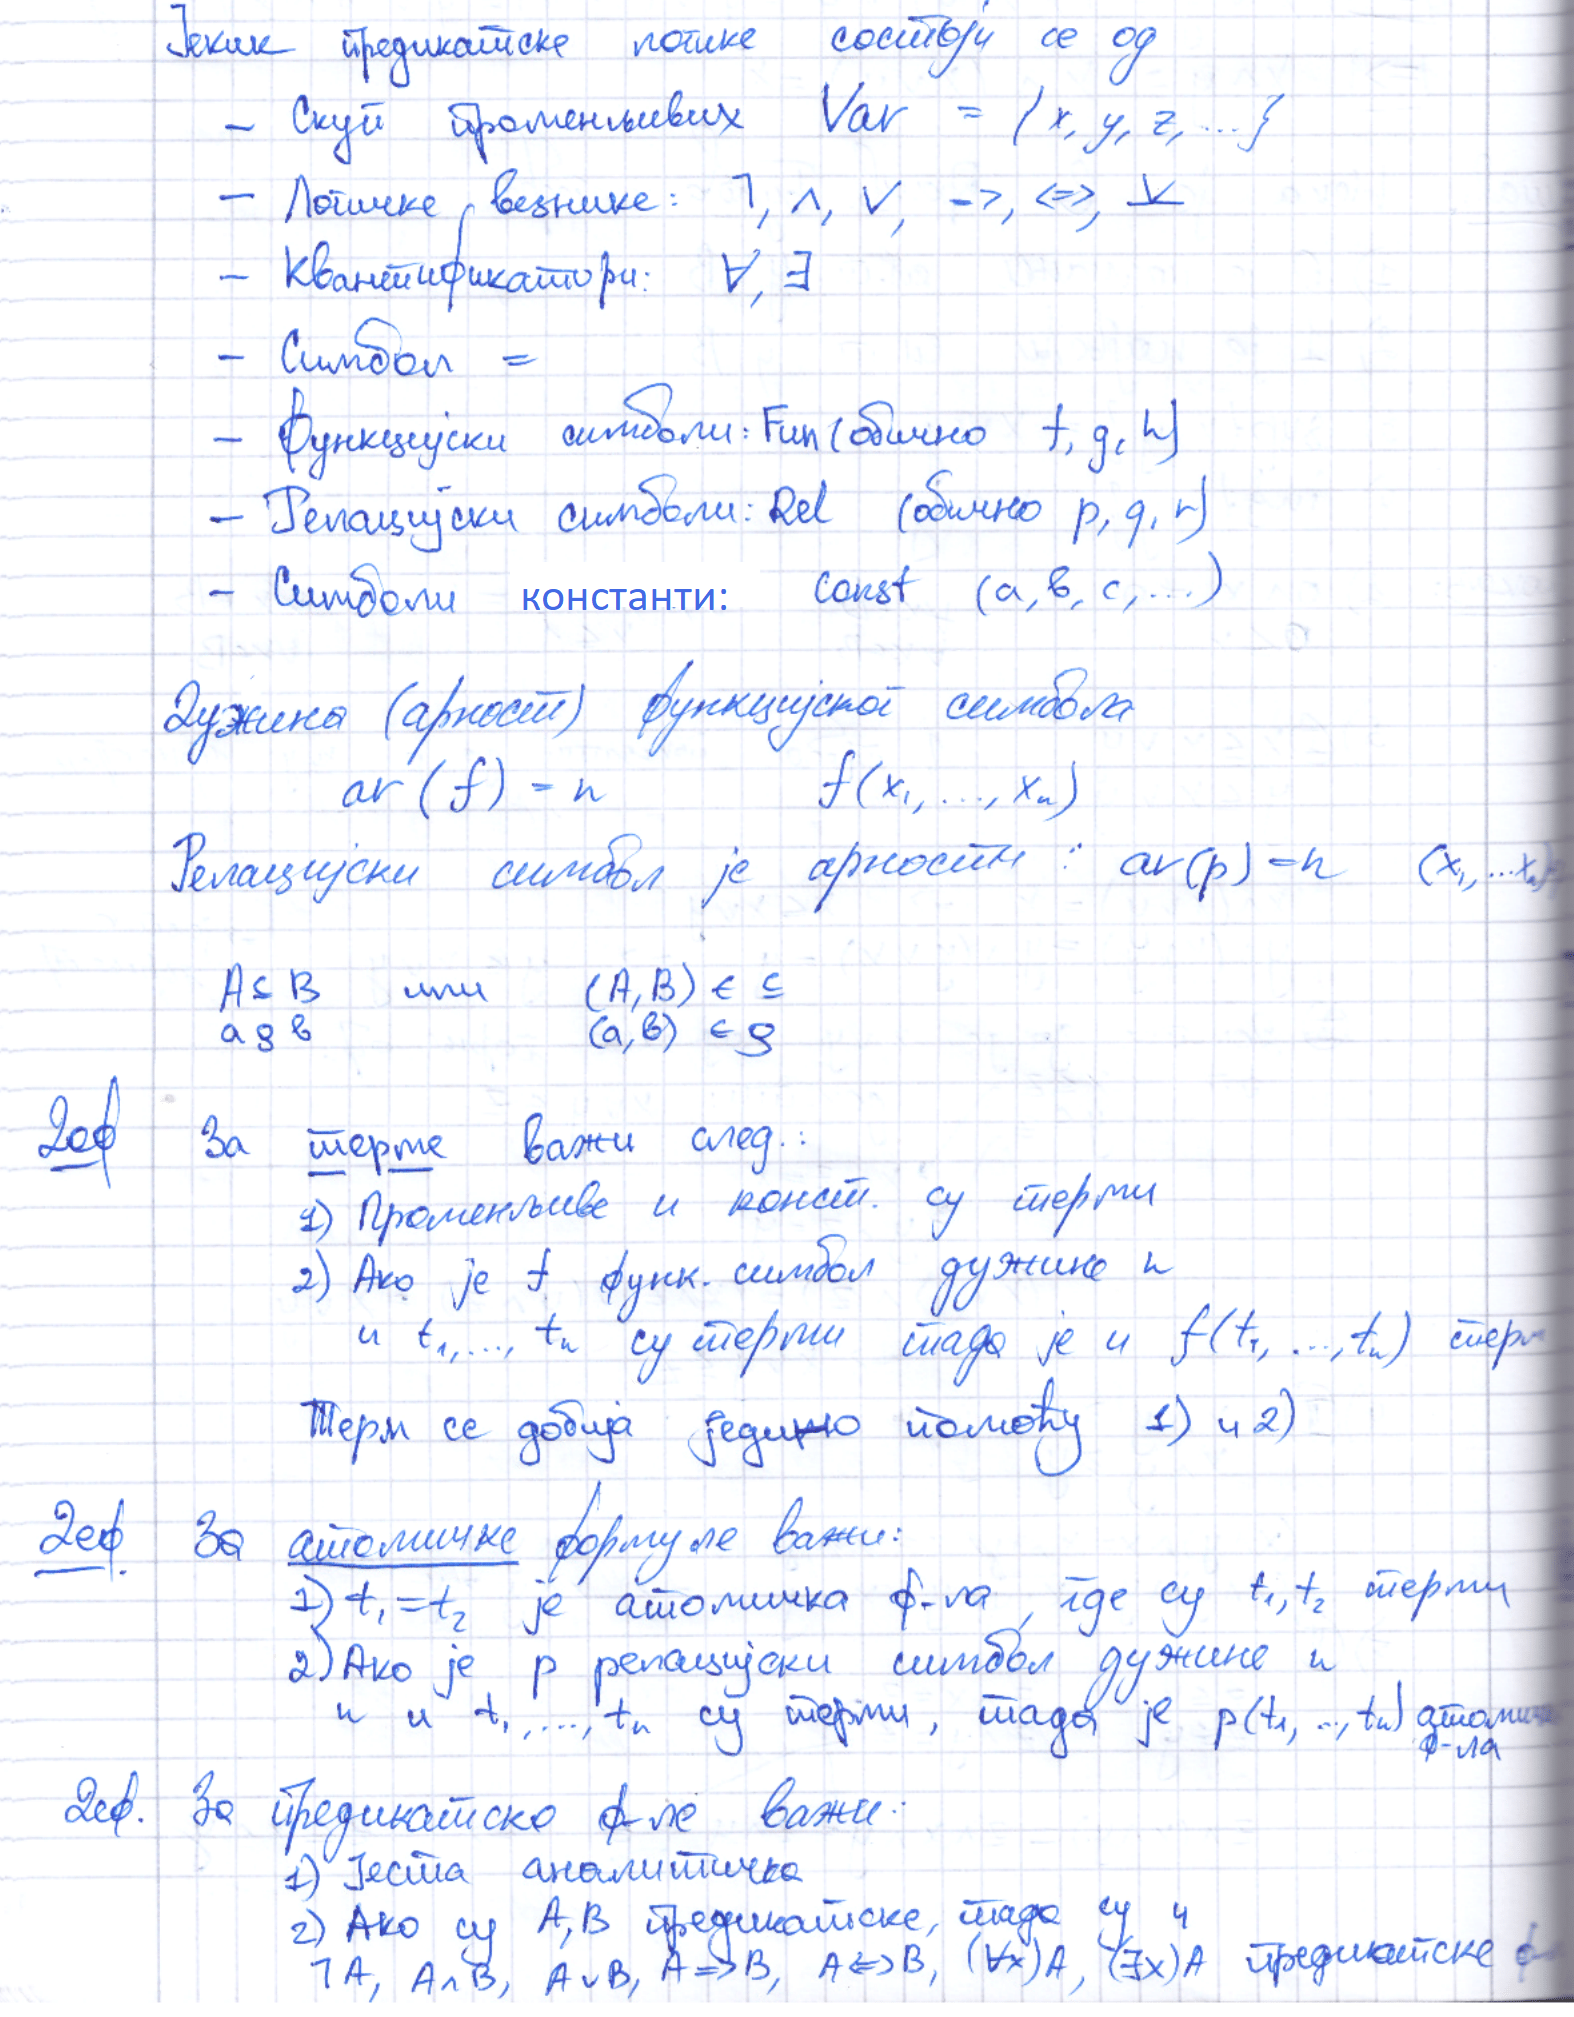 Језик предикатске логике состоји се од
- Скуп променљивих Var = {x, y, z, ...}
- Логичке везнике: ˥, ∧, ∨, ->, <=>, ⊻
- Квантификатори: ∀, ∃
- Симбол =
- Функцијски симболи: Fun (обично f, g, h)
- Релацијски симболи: Rel (обично p, q, r)
- Симболи константи: Const (a, b, c, ...)
Дужина (арност) функцијског симбола
ar (f) = n f(x₁, ..., xₙ)
Релацијски симбол је арности: ar(p) = n (x₁, ... xₙ)
A ⊆ B или (A, B) ∈ ⊆
a ρ b (a, b) ∈ ρ
Деф За терме важи след.:
1) Променљиве и конст. су терми
2) Ако је f функ. симбол дужине n
и t₁, ..., tₙ су терми тада је и f(t₁, ..., tₙ) терм
Терм се добија једино помоћу 1) и 2)
Деф. За атомичке формуле важи:
1) t₁ = t₂ је атомичка ф-ла, где су t₁, t₂ терми
2) Ако је p релацијски симбол дужине n
n и t₁, ..., tₙ су терми, тада је p(t₁, .., tₙ) атомичка
ф-ла
Деф. За предикатске ф-ле важи:
1) Јеста аналитичка
2) Ако су A, B предикатске, тада су и
˥A, A∧B, A∨B, A=>B, A<=>B, (∀x)A, (∃x)A предикатске